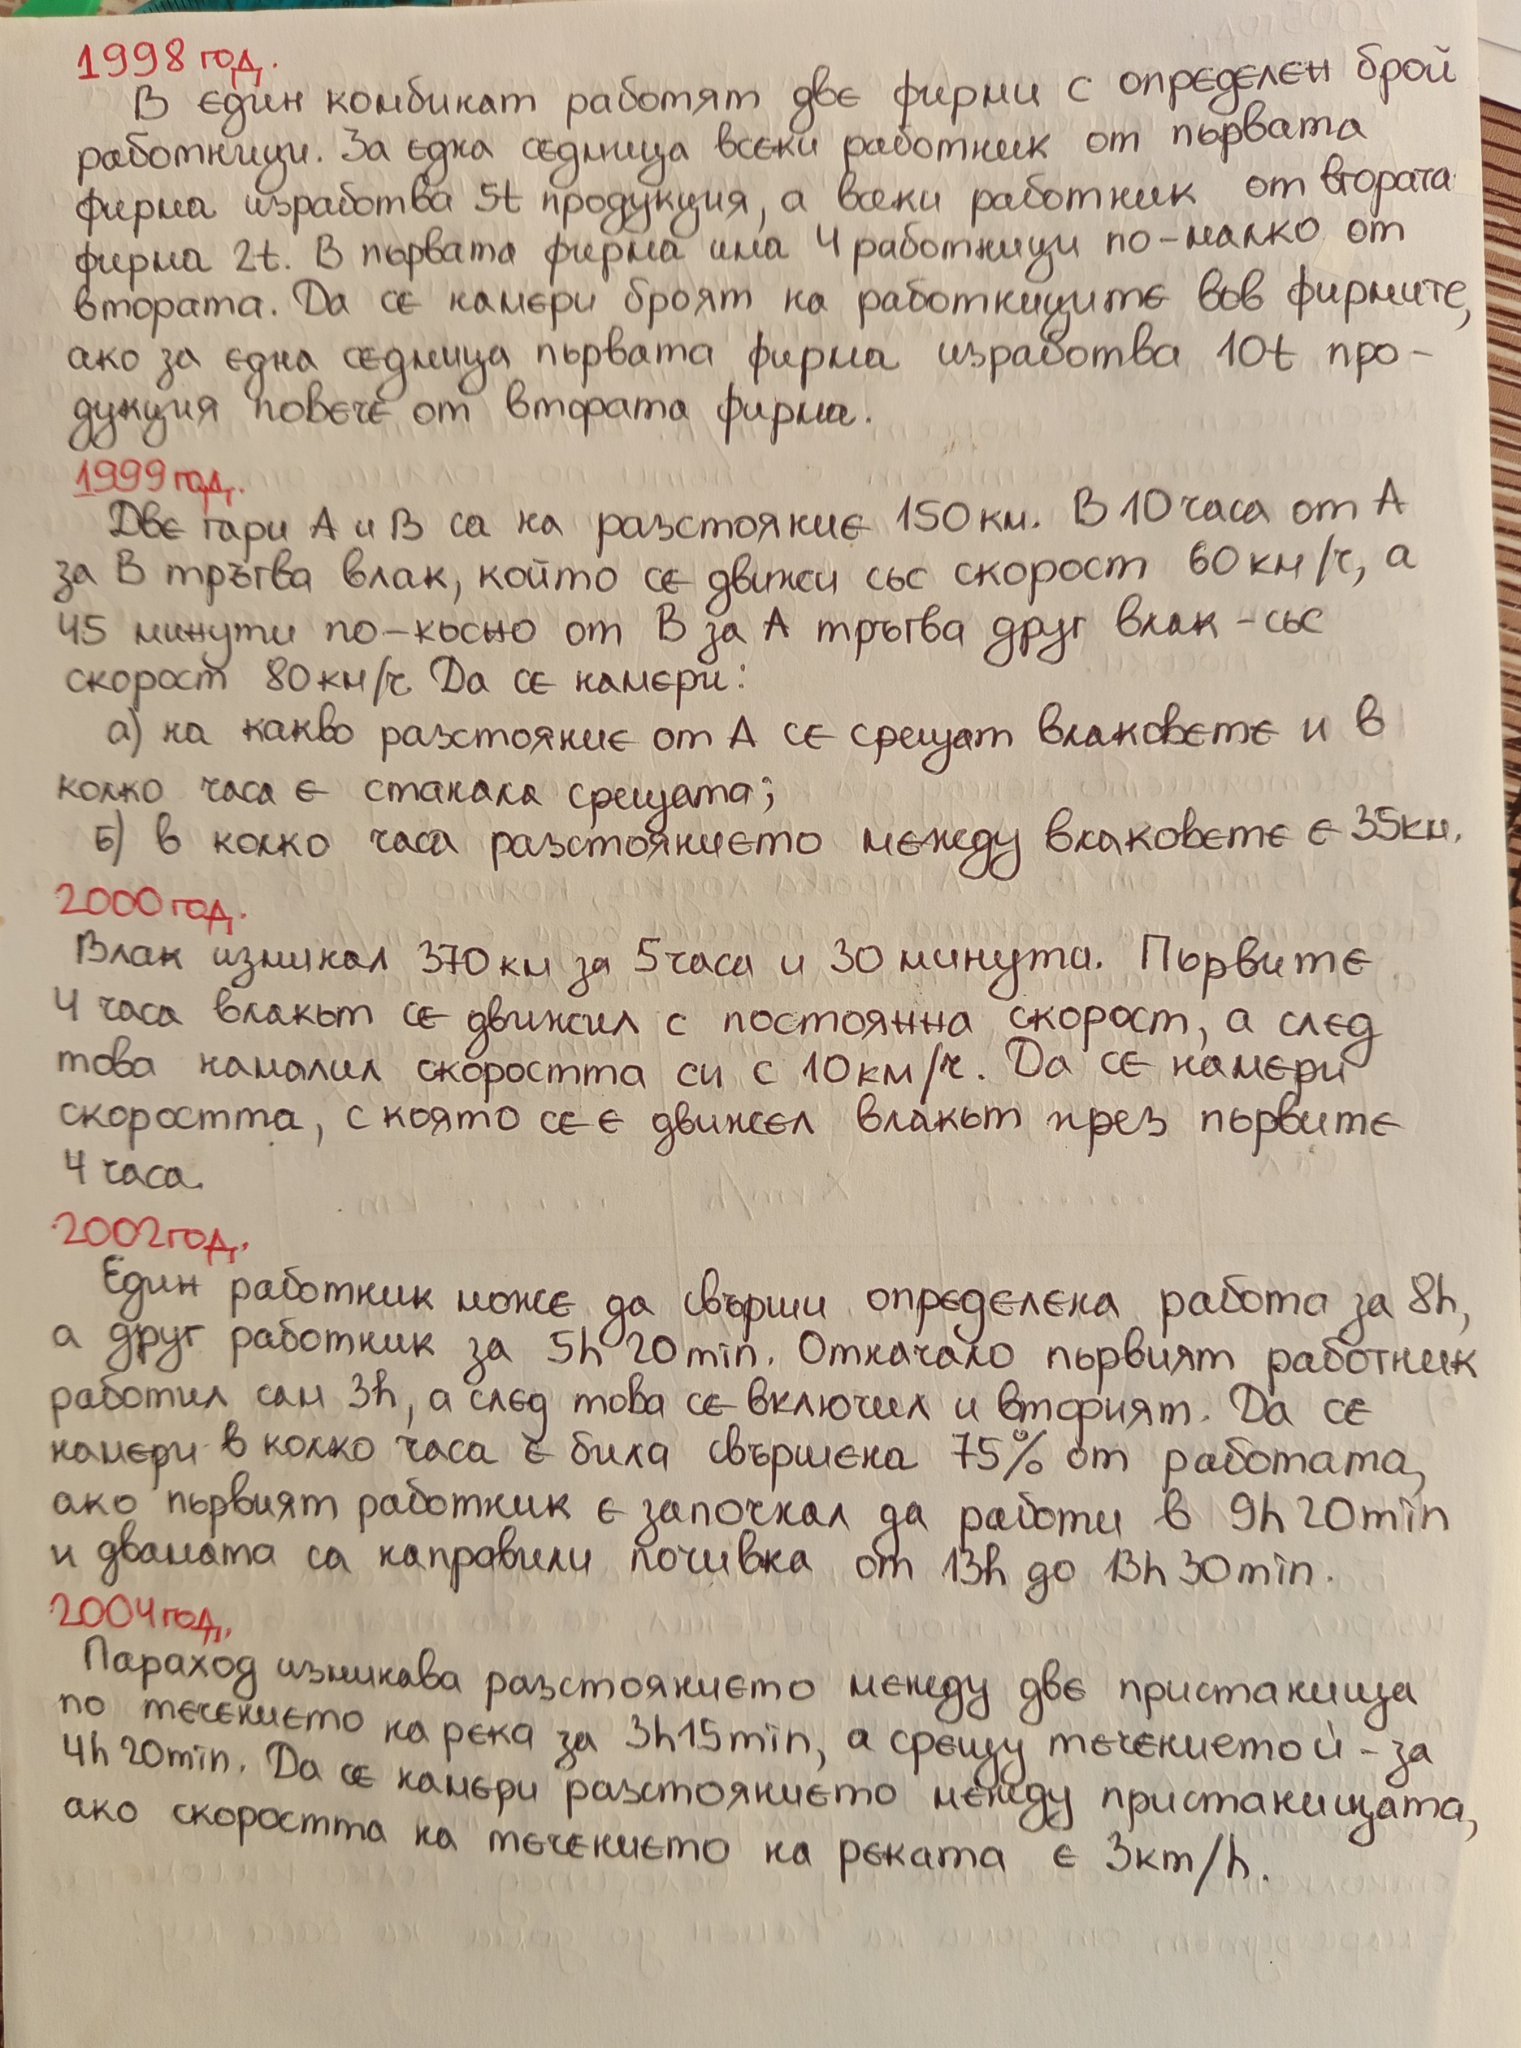 1998 год.
В един комбинат работят две фирми с определен брой
работници. За една седмица всеки работник от първата
фирма изработва 5t продукция, а всеки работник от втората
фирма 2t. В първата фирма има 4 работници по-малко от
втората. Да се намери броят на работниците във фирмите,
ако за една седмица първата фирма изработва 10t про-
дукция повече от втората фирма.
1999 год.
Две гари А и В са на разстояние 150 км. В 10 часа от А
за В тръгва влак, който се движи със скорост 60 км/ч, а
45 минути по-късно от В за А тръгва друг влак - със
скорост 80 км/ч. Да се намери:
а) на какво разстояние от А се срещат влаковете и в
колко часа е станала срещата;
б) в колко часа разстоянието между влаковете е 35 км.
2000 год.
Влак изминал 370 км за 5 часа и 30 минути. Първите
4 часа влакът се движил с постоянна скорост, а след
това намалил скоростта си с 10 км/ч. Да се намери
скоростта, с която се е движел влакът през първите
4 часа.
2002 год.
Един работник може да свърши определена работа за 8h,
а друг работник за 5h 20min. Отначало първият работник
работил сам 3h, а след това се включил и вторият. Да се
намери в колко часа е била свършена 75% от работата,
ако първият работник е започнал да работи в 9h 20min
и двамата са направили почивка от 13h до 13h 30min.
2004 год.
Параход изминава разстоянието между две пристанища
по течението на река за 3h 15min, а срещу течението ѝ - за
4h 20min. Да се намери разстоянието между пристанищата,
ако скоростта на течението на реката е 3km/h.